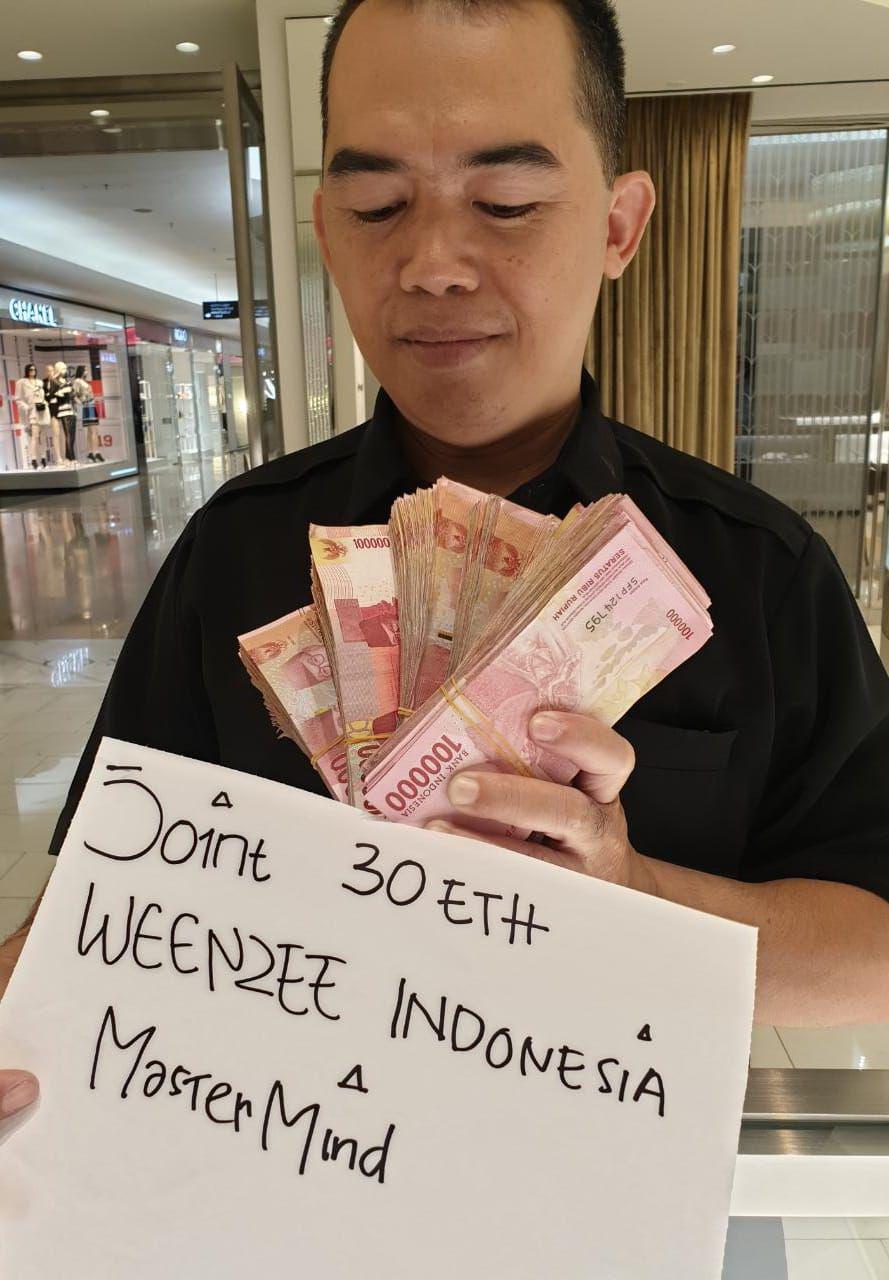 CHANEL
100000
SERATUS RIBU RUPIAH
SFP124795
100000
100000
BANK INDONESIA
Joint 30 ETH
WEENZEE INDONESIA
MasterMind
19